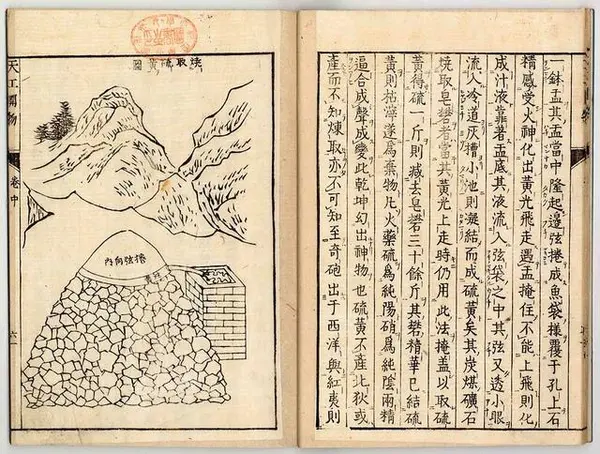 一鉢盂其盂當中隆起邉弦捲成魚袋様覆于孔上石
精感受火神化出黄光飛走遇盂掩住不能上飛則化
成汁液靠着盂底其液流入弦袋之中其弦又透小眼
流入冷道灰槽小池則凝結而成硫黄矣其炭煤礦石
燒取皂礬者當其黄光上走時仍用此法掩盖以取硫
黄得硫一斤則減去皂礬三十餘斤其礬精華已結硫
黄則枯滓遂爲棄物凡火藥硫爲純陽硝爲純陰兩精
逼合成聲成變此乾坤幻出神物也硫黄不産北狄或
産而不知煉取亦不可知至奇砲出于西洋與紅夷則
燒取硫黄圖
捲弦向内
天工開物
卷中